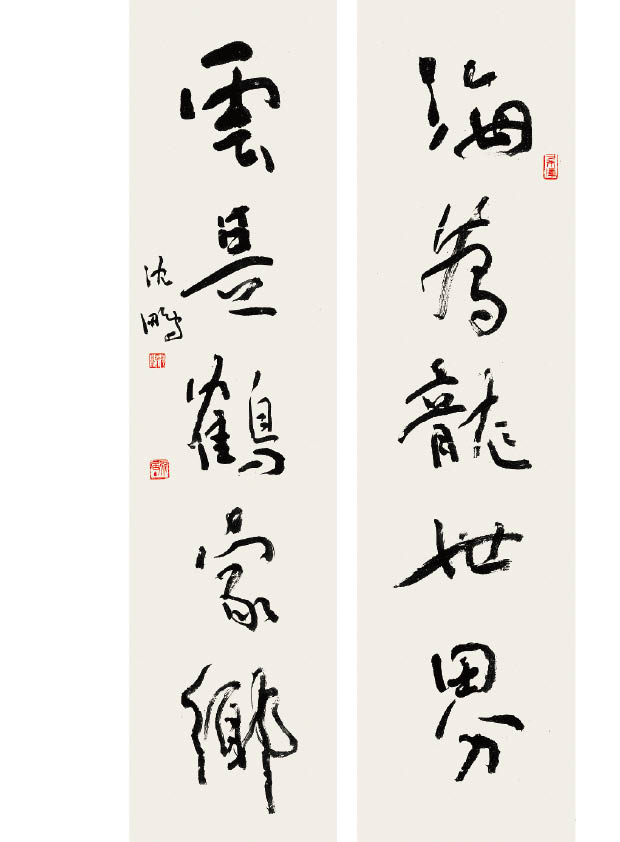 海為龍世界
雲是鶴家鄉
沈鵬